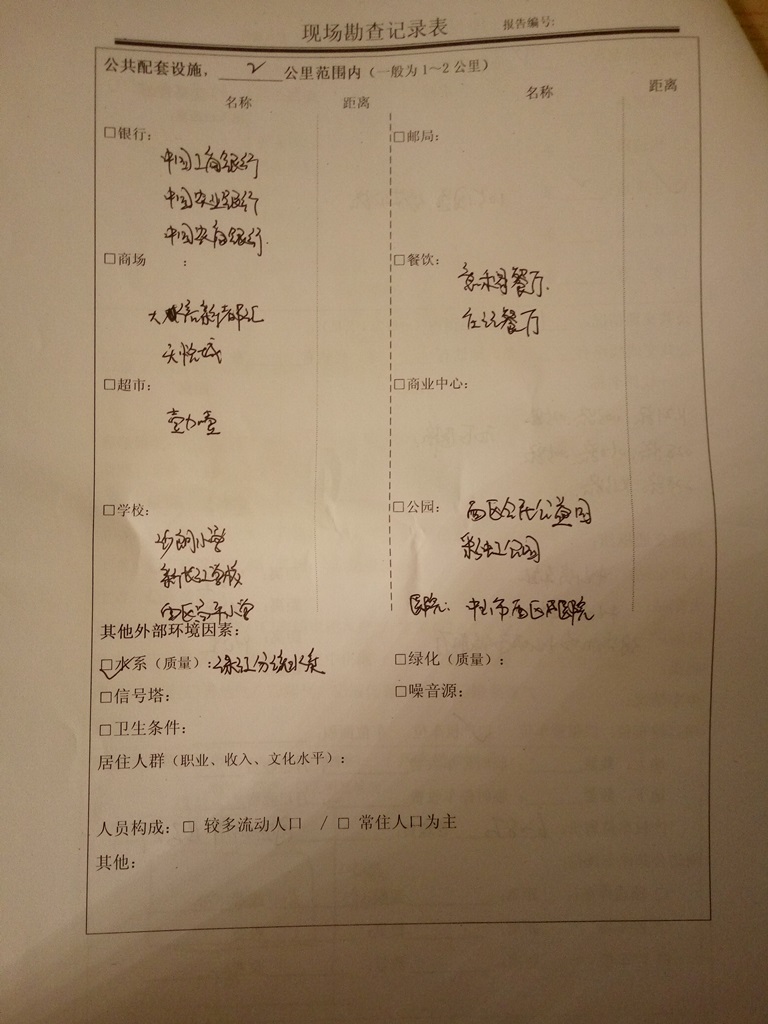 现场勘查记录表
报告编号:
公共配套设施, 2 公里范围内（一般为1～2公里）
名称 距离 名称 距离
□银行:
中国工商银行
中国农业银行
中国农商银行.
□邮局:
□商场 :
大信新都汇
天悦城
□餐饮:
意利哥餐厅.
餐厅
□超市:
壹加壹
□商业中心:
□学校:
沙朗小学
新长江学校
西区小学
□公园: 西区公园
彩虹公园
医院: 中山市西区医院
其他外部环境因素:
□水系（质量）: 水质
□绿化（质量）:
□信号塔:
□噪音源:
□卫生条件:
居住人群（职业、收入、文化水平）:
人员构成: □ 较多流动人口 / □ 常住人口为主
其他: